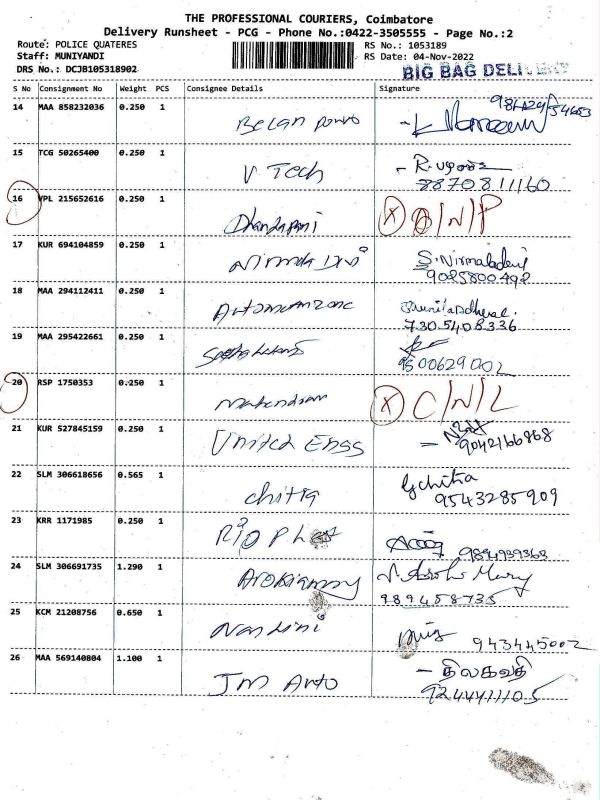 THE PROFESSIONAL COURIERS, Coimbatore
Delivery Runsheet - PCG - Phone No.:0422-3505555 - Page No.:2
Route: POLICE QUATERES RS No.: 1053189
Staff: MUNIYANDI RS Date: 04-Nov-2022
DRS No.: DCJB105318902 BIG BAG DELIVERY
S No Consignment No Weight PCS Consignee Details Signature
14 MAA 858232036 0.250 1
15 TCG 50265400 0.250 1 V Tech
8870811160
16 VPL 215652616 0.250 1 Dhandapani
17 KUR 694104859 0.250 1 S. Nirmaladevi
9025800492
18 MAA 294112411 0.250 1
7305408336
19 MAA 295422661 0.250 1
9500629002
20 RSP 1750353 0.250 1 Mahendran C/N/L
21 KUR 527845159 0.250 1 United Engs
9042166868
22 SLM 306618656 0.565 1 chitra
9543285909
23 KRR 1171985 0.250 1
9894939363
24 SLM 306691735 1.290 1 Mary
989458735
25 KCM 21208756 0.650 1 Nandini
943445002
26 MAA 569140804 1.100 1 JM Auto - திலகவதி
9244411105